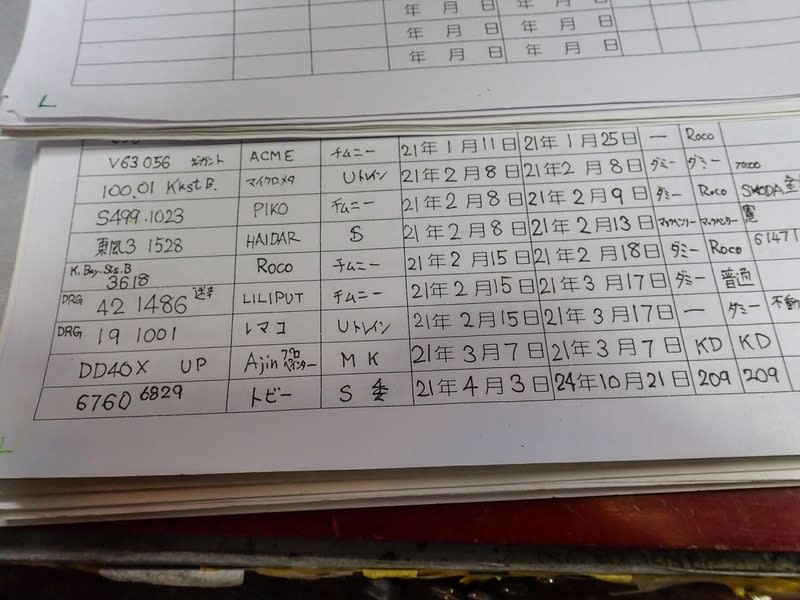 年 月 日 年 月 日
年 月 日 年 月 日
年 月 日 年 月 日
V63 056 ギガント ACME チムニー 21年1月11日 21年1月25日 ー Roco
100.01 KkstB. マイクロメタ Uトレイン 21年2月8日 21年2月8日 ダミー ダミー
S499.1023 PIKO チムニー 21年2月8日 21年2月9日 ダミー Roco SKODA
東風3 1528 HAIDAR S 21年2月8日 21年2月13日
K.Bay.Sts.B 3618 Roco チムニー 21年2月15日 21年2月18日 ダミー Roco 61471
DRG 42 1486 迷彩 LILIPUT チムニー 21年2月15日 21年3月17日 ダミー 普通
DRG 19 1001 レマコ Uトレイン 21年2月15日 21年3月17日 ー ダミー 不動
DD40X UP Ajin プロペインター M K 21年3月7日 21年3月7日 KD KD
6760 6829 トビー S 委 21年4月3日 24年10月21日 209 209